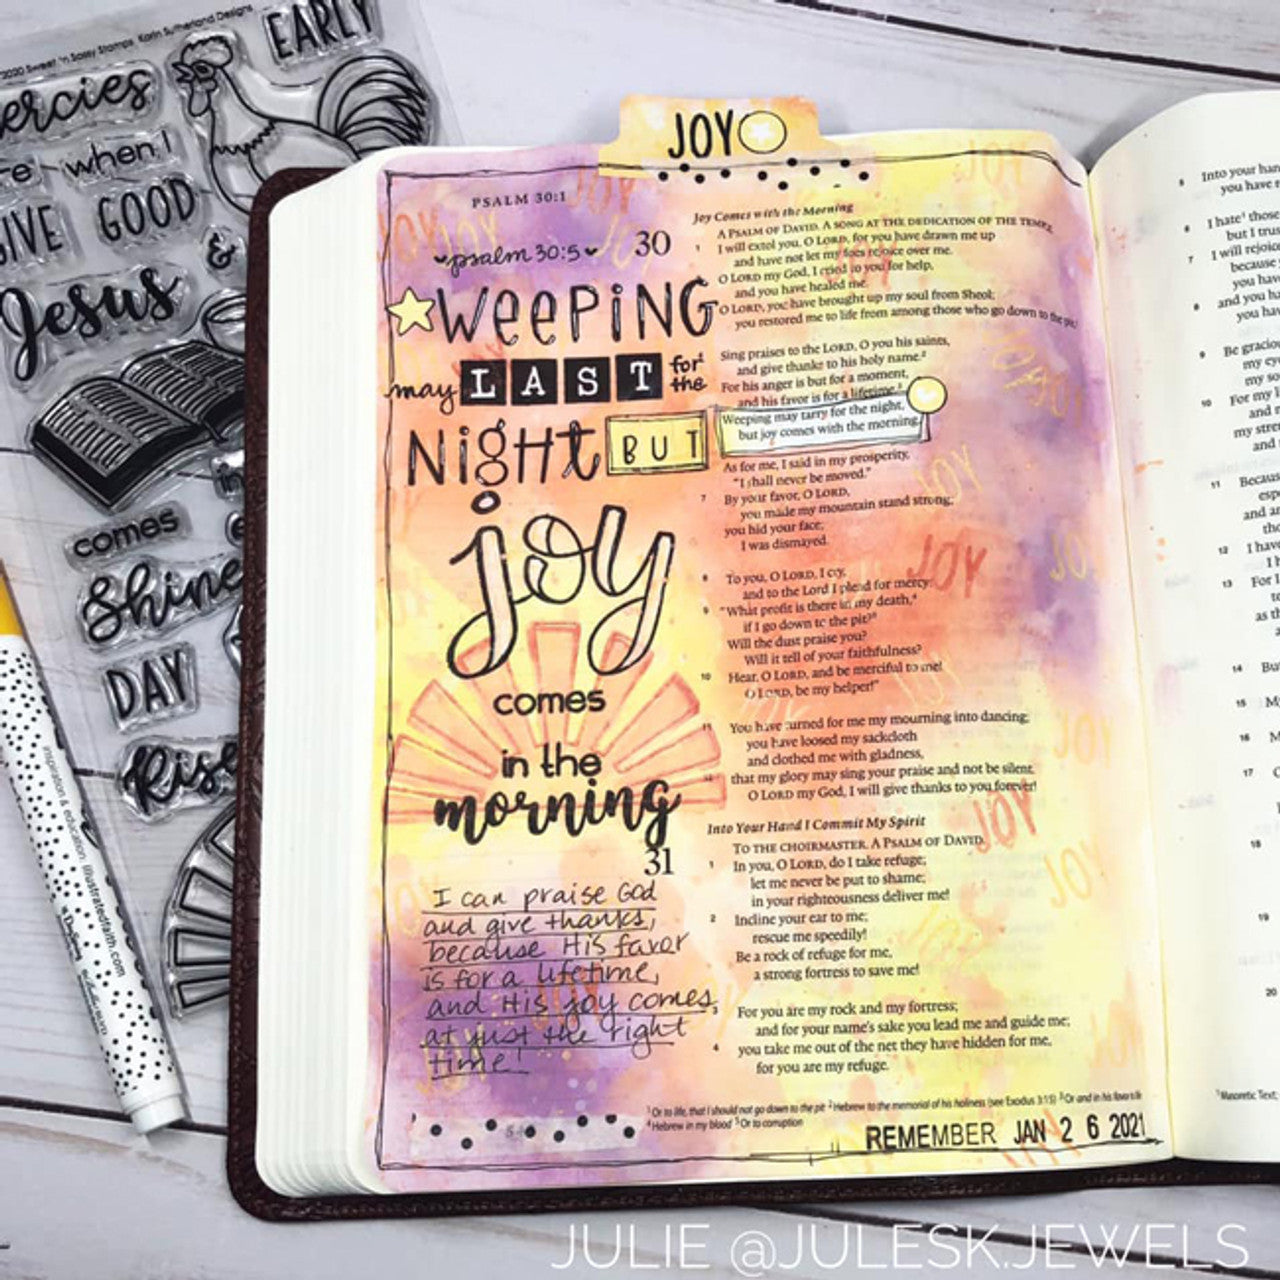 2020 Sweet 'n Sassy Stamps Karin Sutherland Designs
EARLY
ercies
when I
GIVE GOOD
&
Jesus
comes
Shine
DAY
Rise
inspiration & education: illustratedfaith.com
JOY
PSALM 30:1
psalm 30:5
30
WEEPING
may LAST for the
Night BUT
joy
comes
in the
morning
31
I can praise God
and give thanks,
because His favor
is for a lifetime,
and His joy comes
at just the right
time!
Joy Comes with the Morning
A PSALM OF DAVID. A SONG AT THE DEDICATION OF THE TEMPLE.
1 I will extol you, O LORD, for you have drawn me up
and have not let my foes rejoice over me.
O LORD my God, I cried to you for help,
and you have healed me.
O LORD, you have brought up my soul from Sheol;
you restored me to life from among those who go down to the pit.
Sing praises to the LORD, O you his saints,
and give thanks to his holy name.
For his anger is but for a moment,
and his favor is for a lifetime.
Weeping may tarry for the night,
but joy comes with the morning.
As for me, I said in my prosperity,
"I shall never be moved."
7 By your favor, O LORD,
you made my mountain stand strong;
you hid your face;
I was dismayed.
8 To you, O LORD, I cry,
and to the Lord I plead for mercy:
9 "What profit is there in my death,
if I go down to the pit?
Will the dust praise you?
Will it tell of your faithfulness?
10 Hear, O LORD, and be merciful to me!
O LORD, be my helper!"
11 You have turned for me my mourning into dancing;
you have loosed my sackcloth
and clothed me with gladness,
12 that my glory may sing your praise and not be silent.
O LORD my God, I will give thanks to you forever!
Into Your Hand I Commit My Spirit
TO THE CHOIRMASTER. A PSALM OF DAVID.
1 In you, O LORD, do I take refuge;
let me never be put to shame;
in your righteousness deliver me!
2 Incline your ear to me;
rescue me speedily!
Be a rock of refuge for me,
a strong fortress to save me!
3 For you are my rock and my fortress;
and for your name's sake you lead me and guide me;
4 you take me out of the net they have hidden for me,
for you are my refuge.
1 Or to life, that I should not go down to the pit 2 Hebrew to the memorial of his holiness (see Exodus 3:15) 3 Or and in his favor is life
4 Hebrew in my blood 5 Or to corruption
REMEMBER JAN 2 6 2021
5 Into your han
you have r
6 I hate those
but I trus
7 I will rejoic
because
you hav
8 and you ha
you hav
9 Be graciou
my eye
my so
10 For my
and
my stren
and
11 Becaus
esp
and an
tho
12 I have
I h
13 For I
to
as th
14 Bu
15 M
16 M
17
18
19
20
1 Masoretic Text;
JULIE @JULESK.JEWELS